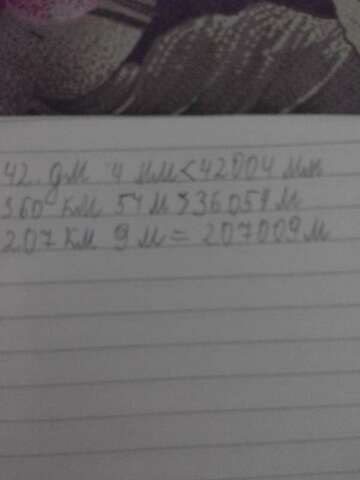 42 дм 4 мм < 42004 мм
360 км 54 м > 36054 м
207 км 9 м = 207009 м